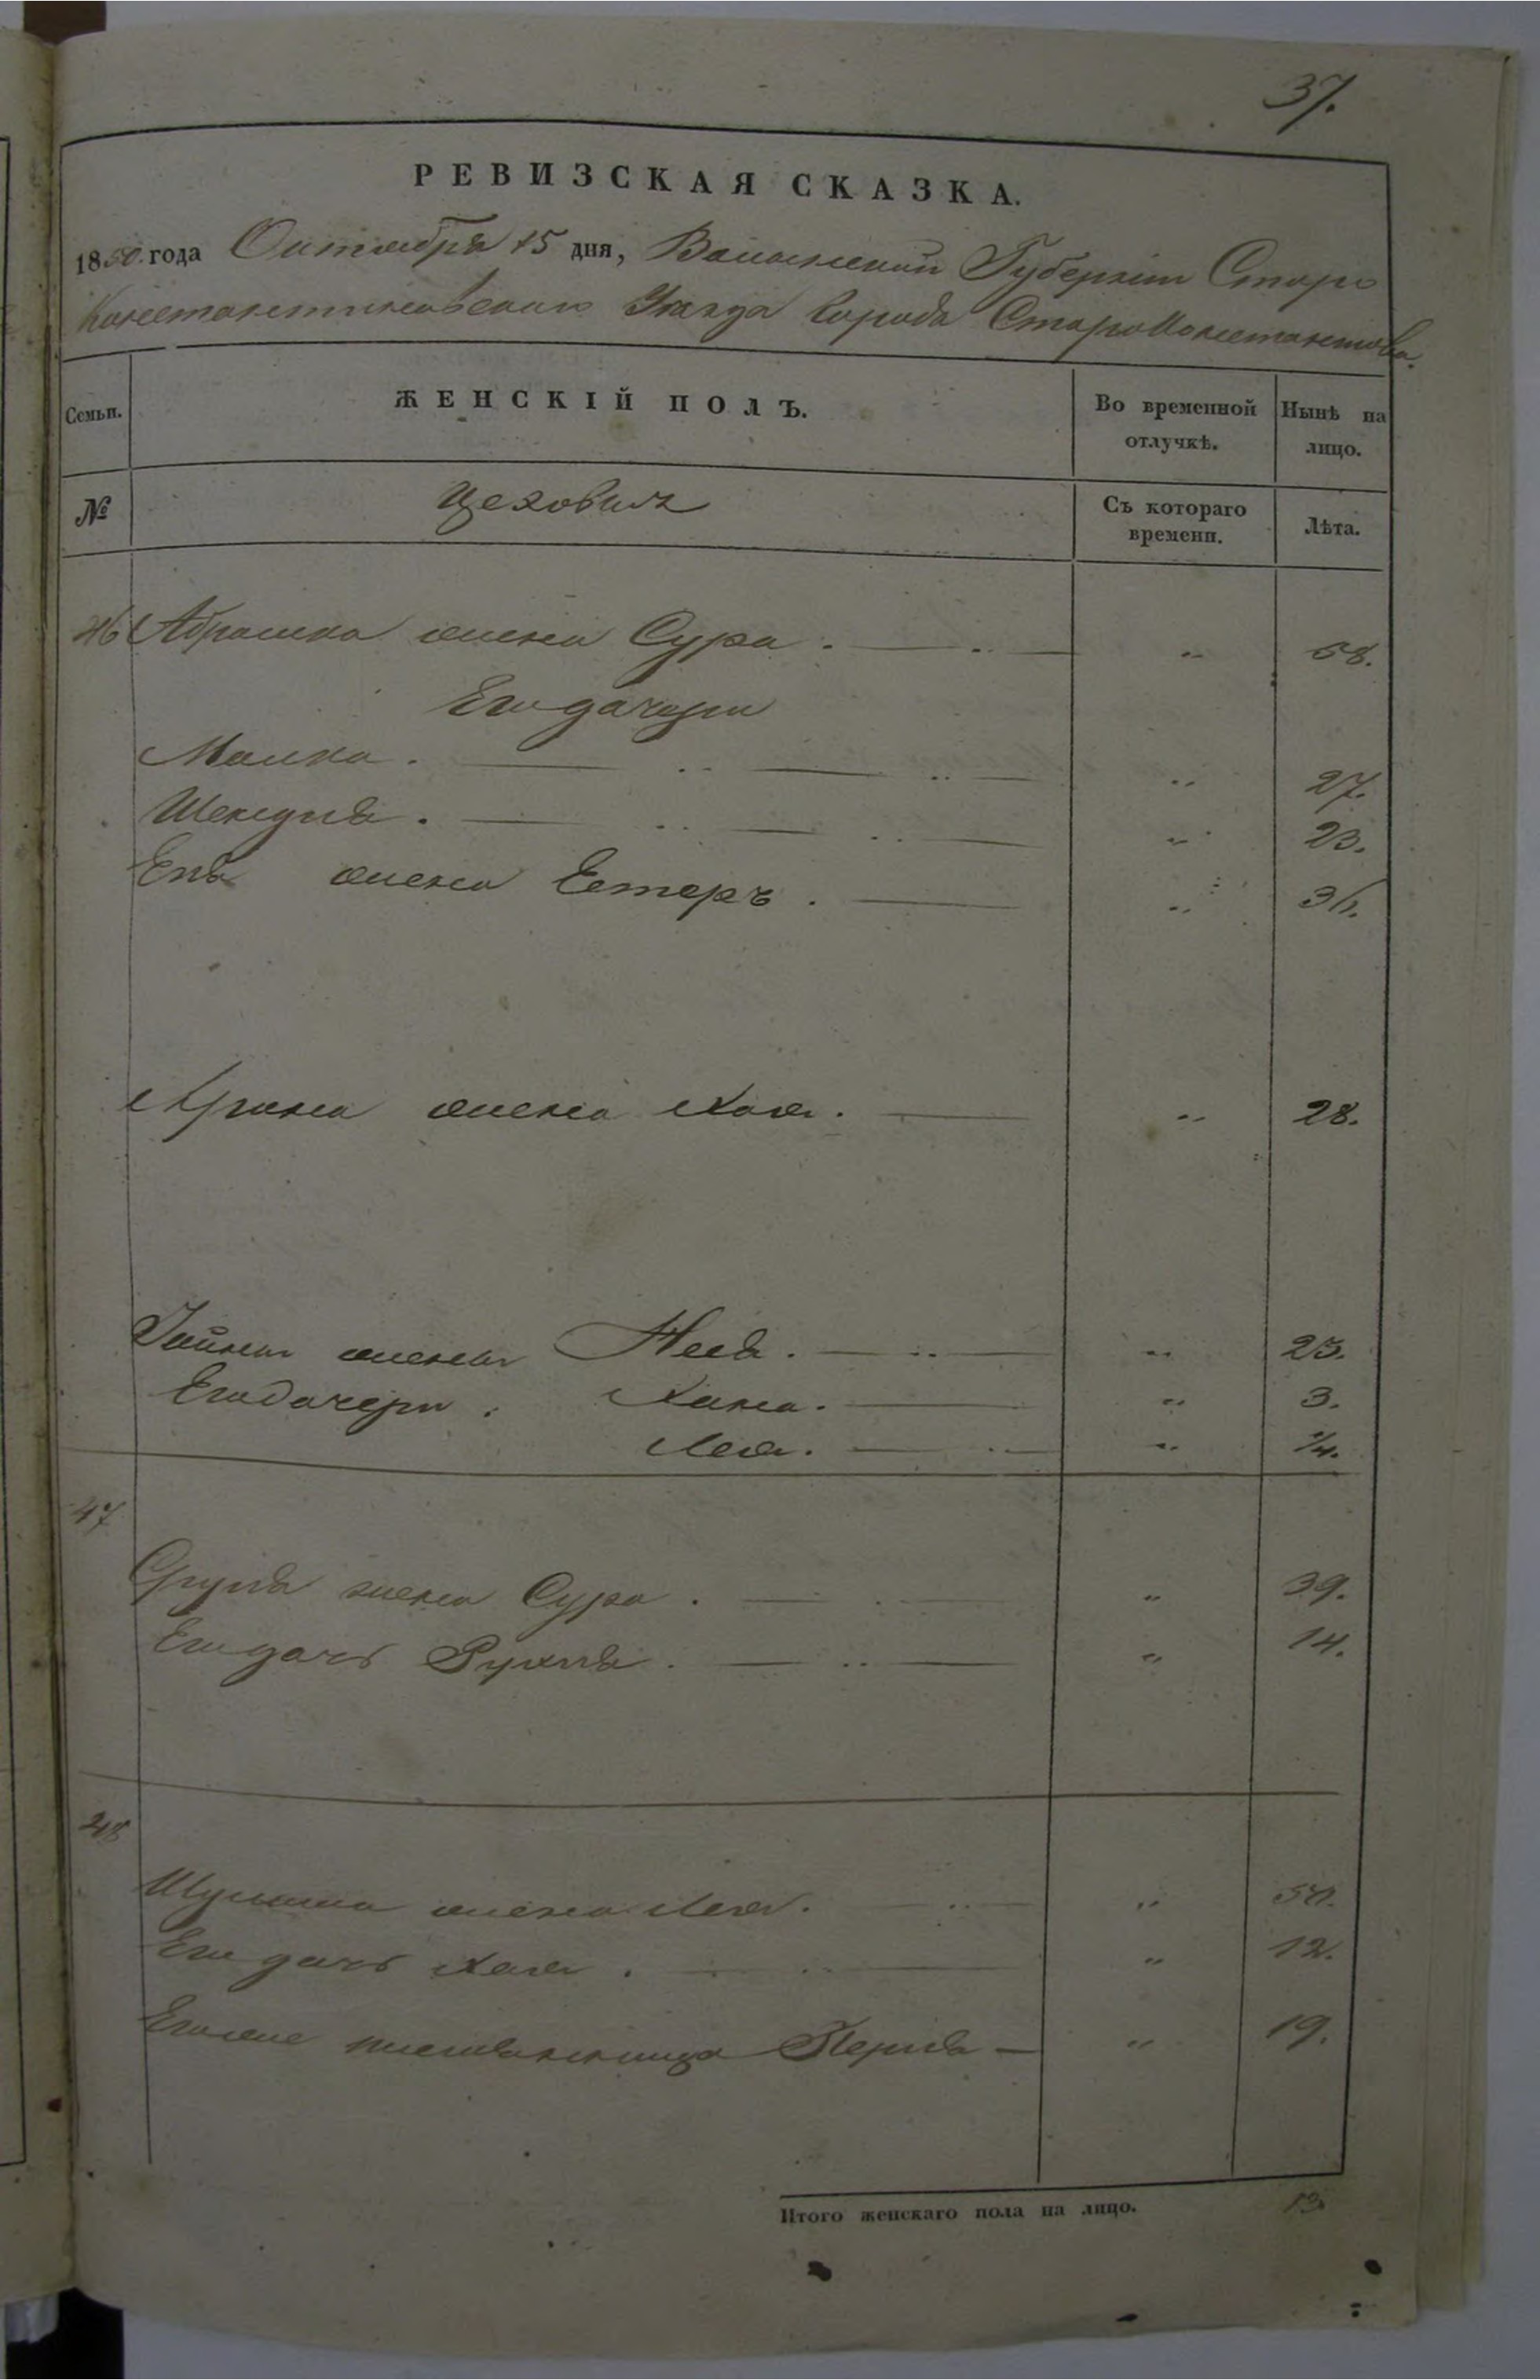 37.
РЕВИЗСКАЯ СКАЗКА.
1850 года Октября 15 дня, Волынской Губернии Старо
Константиновскаго Уезда Города СтароКонстантинова.
Семьи. ЖЕНСКІЙ ПОЛЪ. Во временной отлучкѣ. Нынѣ на лицо.
№ Цеховыя Съ котораго времени. Лѣта.
46 Абрамка жена Сура . — .. — „ 58.
Его дочери
Малка . — .. — .. — „ 27.
— .. — .. — „ 23.
жена Естеръ . — „
жена Хая . — „ 28.
жена Неся . — .. — „ 23.
Его дочери . Хана . — „ 3.
Лея . — .. — „ 1/4.
47
жена Сура . — . — „ 39.
Его дочь Рухля . — .. — „ 14.
48
жена Лея . — .. — „ 50.
Его дочь Хая . — .. — „ 12.
племянница Перля — „ 19.
Итого женскаго пола на лицо. 13